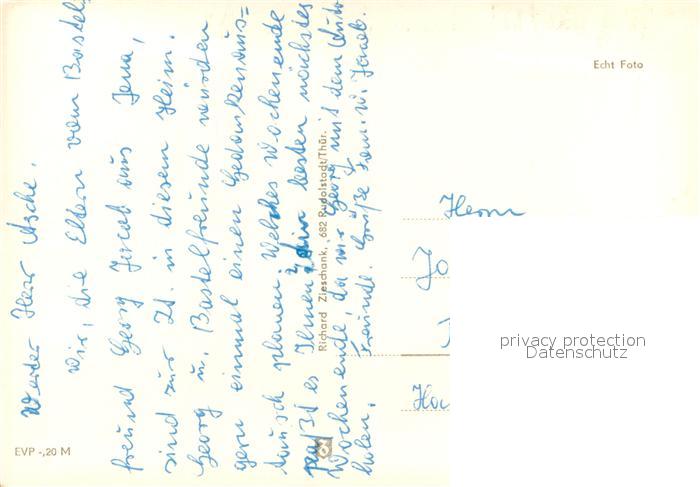 Werter Herr Asche.
Wir, die Eltern vom Bastel-
freund Georg Jacob aus Jena,
sind zur Zt. in diesem Heim.
Georg u. Bastelfreunde würden
gern einmal einen Gedankenaus-
tausch planen. Welches Wochenende
paßt es Ihnen? Am besten nächstes
Wochenende, da wir Georg mit dem Auto
holen.
Freundl. Grüße Fam. W. Jacob.
Richard Zieschank, 682 Rudolstadt/Thür.
Echt Foto
Herrn
privacy protection
Datenschutz
EVP -,20 M